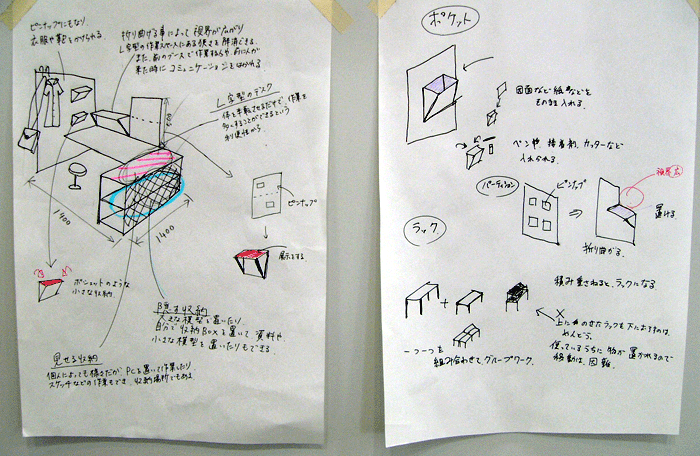 ピンナップにもなり、
衣服や鞄をかけられる
折り曲げる事によって視界が広がり
L字型の作業スペースにある狭さを解消できる.
また、前のブースで作業する人や、前に人が
来た時にコミュニケーションをはかれる
L字型のデスク
体を半転させるだけで、作業を
多くすることができるという
利便性から.
600
1400
1400
ピンナップ
展示とする
ポシェットのような
小さな収納
見ま収納
大きな模型を置いたり
自分で収納Boxを置いて資料や、
小さな模型を置いたりもできる.
見せる収納
個人によっても様々だが、PCを置いて作業したり
スケッチなどの作業もでき、収納場所でもある
ポケット
図面など紙などを
そのまま入れる.
ペン類、接着剤、カッターなど
入れられる.
パーティション
ピンナップ
視界広
⇒
置ける.
折り曲がる.
ラック
積み重ねると、ラックになる
+
×
上にのせたラックを下におろすのは、
めんどう.
使っているうちに物が置かれるので
移動は、困難.
一つ一つを
組み合わせて、グループワーク.